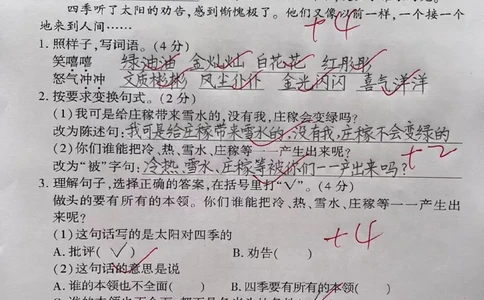 四季听了太阳的劝告,感到惭愧极了。他们又像以前一样,一个接一个
地来到人间…… +4
1. 照样子,写词语。(4 分)
笑嘻嘻 绿油油 金灿灿 白花花 红彤彤
怒气冲冲 文质彬彬 风尘仆仆 金光闪闪 喜气洋洋
2. 按要求变换句式。(2 分)
(1)我可是给庄稼带来雪水的,没有我,庄稼会变绿吗?
改为陈述句:我可是给庄稼带来雪水的,没有我,庄稼不会变绿的
(2)你们谁能把冷、热、雪水、庄稼等一一产生出来呢? +2
改为“被”字句:冷热、雪水、庄稼等被你们一一产出来吗?
3. 理解句子,选择正确的答案,在括号里打“√”。(4 分)
做头的要有所有的本领。你们谁能把冷、热、雪水、庄稼等一一产生出
来呢?
(1)这句话写的是太阳对四季的 +4
A. 批评( √ ) B. 劝告( )
(2)这句话的意思是说
A. 谁的本领也不全面( ) B. 四季要有所有的本领( )